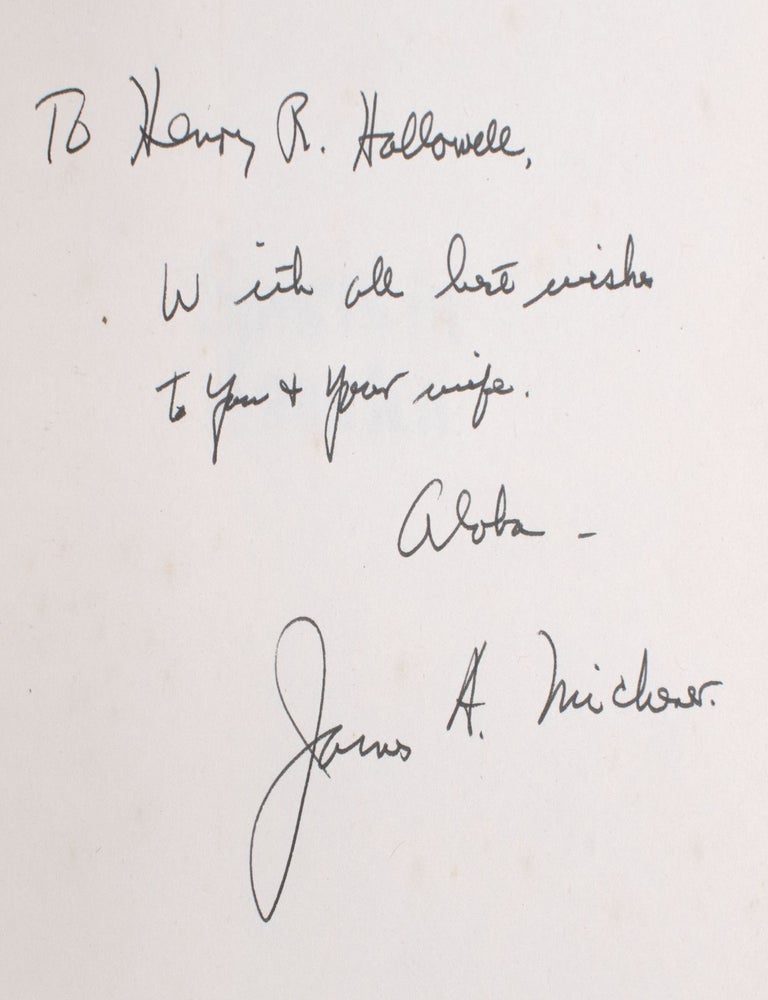 To Henry R. Hallowell,
With all best wishes
to you + your wife.
Aloha -
James A. Michener.